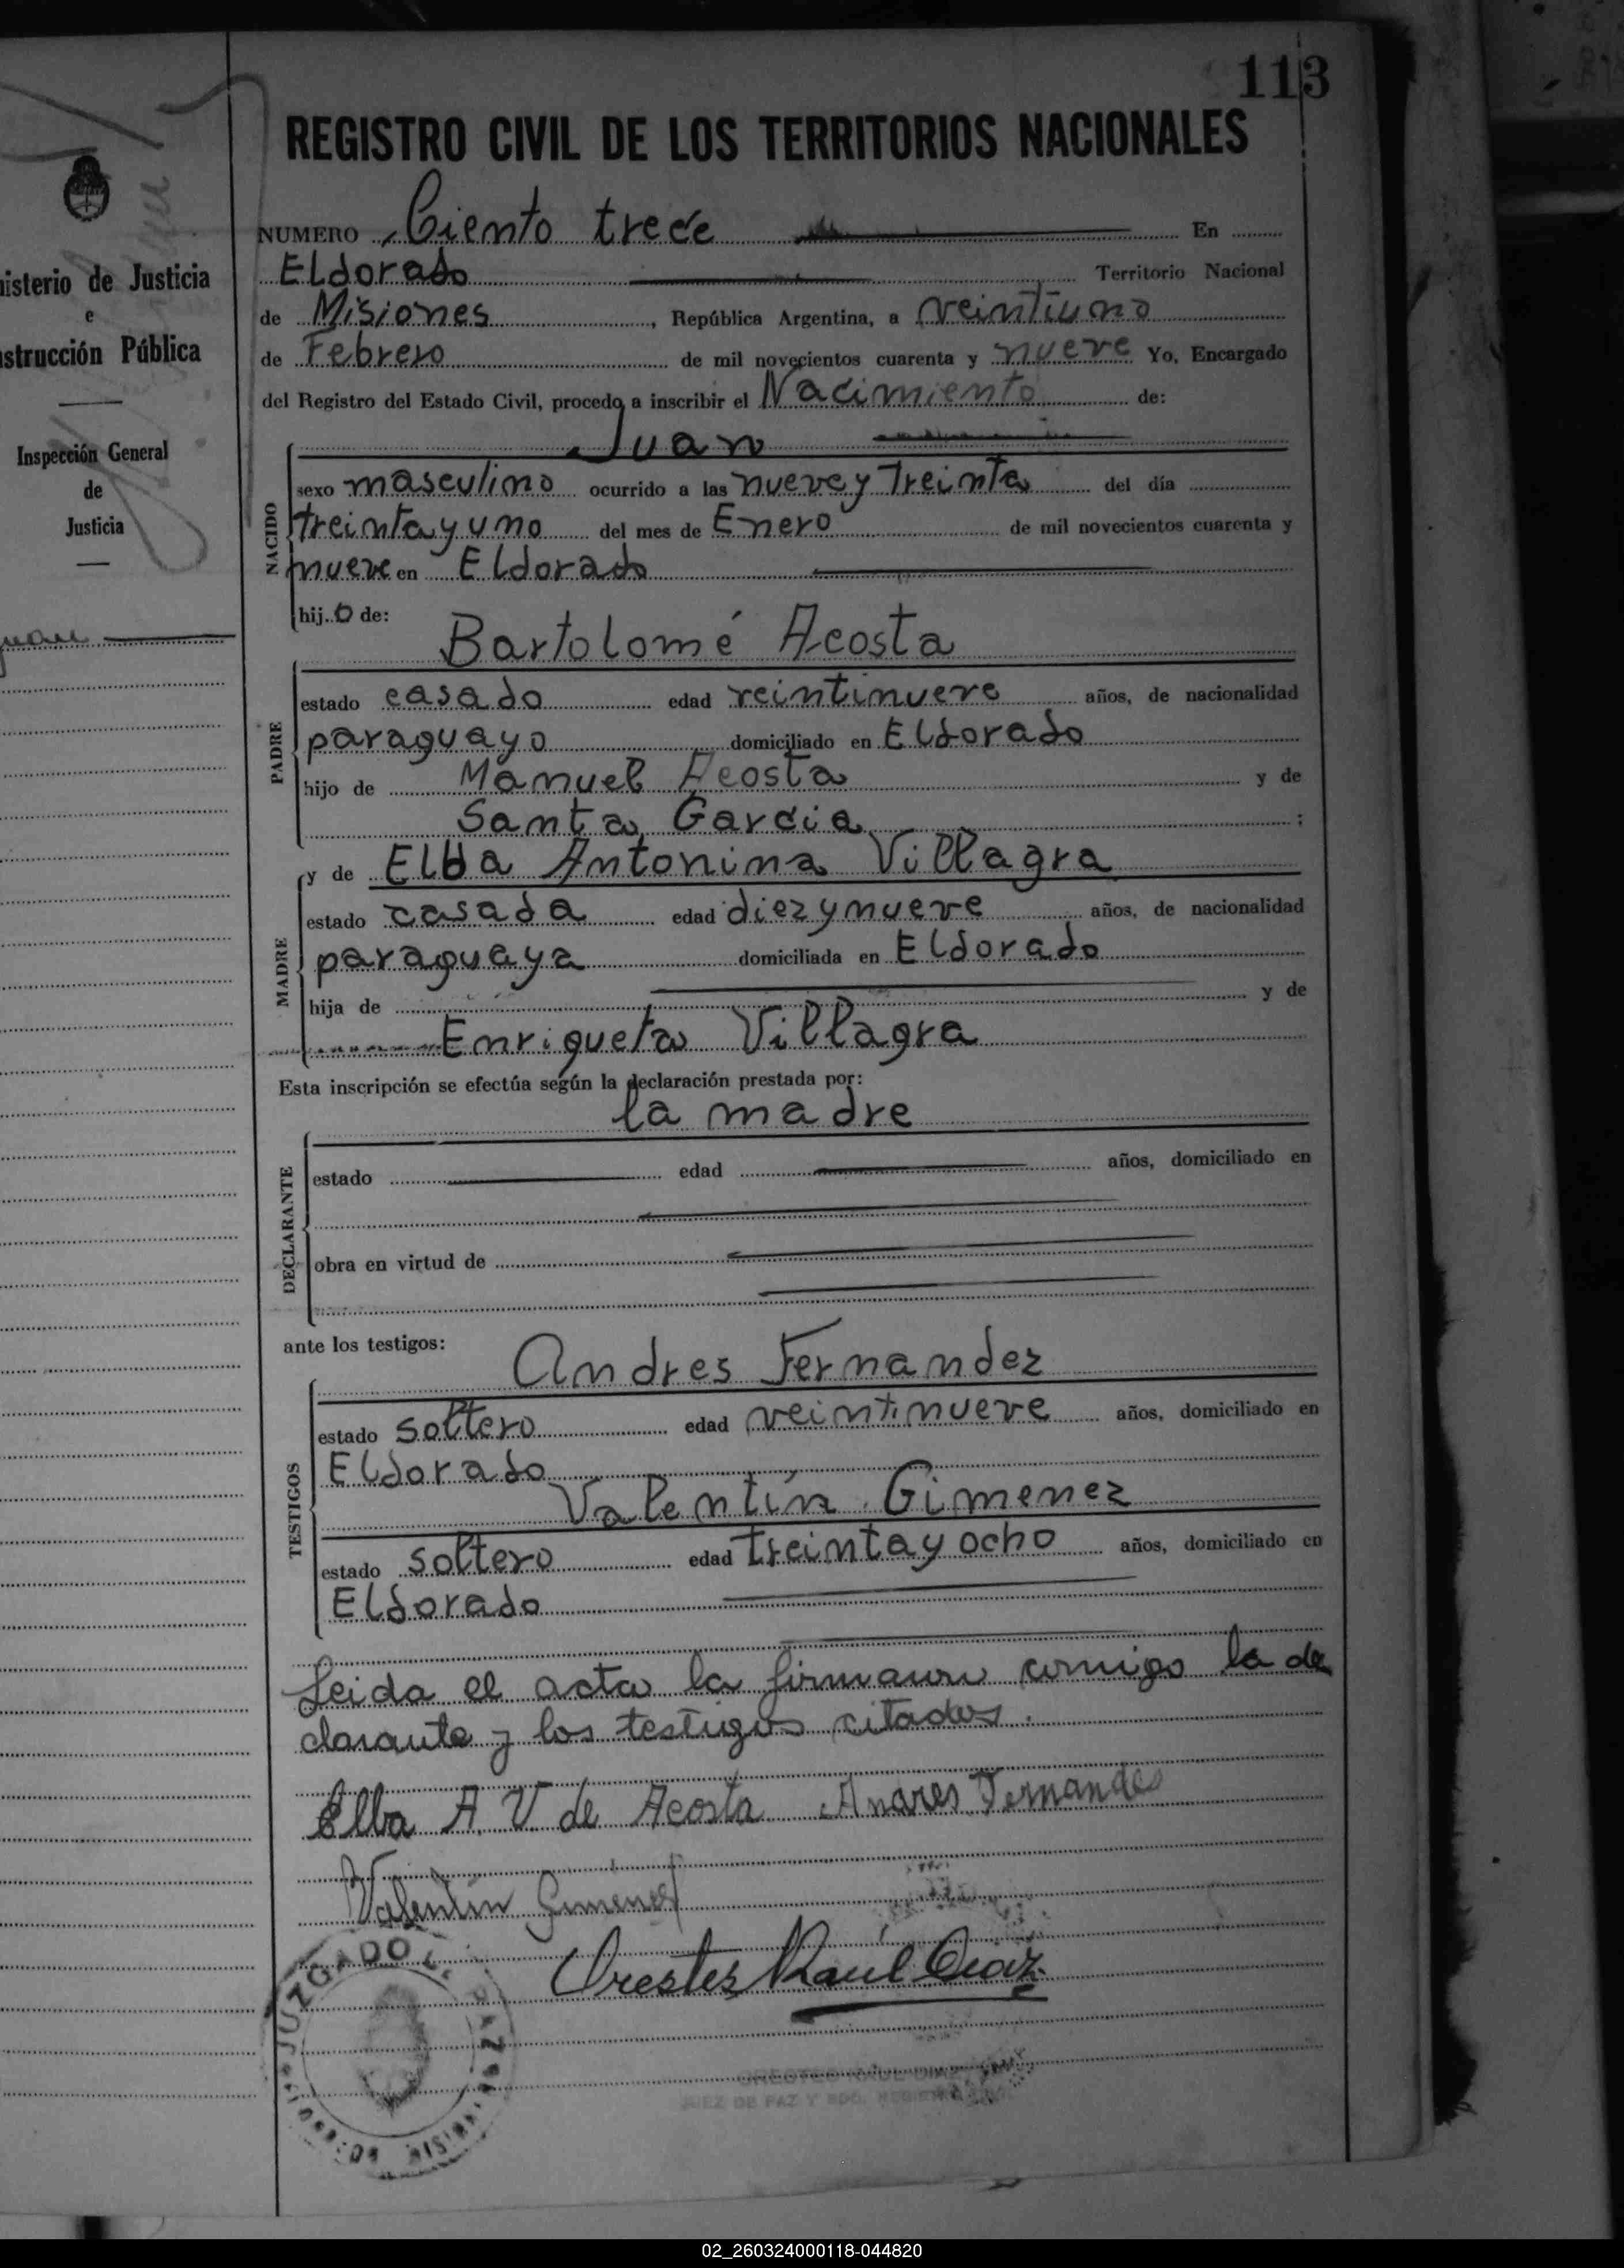 113
REGISTRO CIVIL DE LOS TERRITORIOS NACIONALES
NUMERO Ciento trece En
Eldorado Territorio Nacional
de Misiones, República Argentina, a veintiuno
de Febrero de mil novecientos cuarenta y nueve Yo, Encargado
del Registro del Estado Civil, procedo a inscribir el Nacimiento de:
Juan
NACIDO
sexo masculino ocurrido a las nueve y treinta del día
treinta y uno del mes de Enero de mil novecientos cuarenta y
nueve en Eldorado
hijo de:
Bartolomé Acosta
PADRE
estado casado edad veintinueve años, de nacionalidad
paraguayo domiciliado en Eldorado
hijo de Manuel Acosta y de
Santa Garcia ;
y de Elba Antonina Villagra
MADRE
estado casada edad diez y nueve años, de nacionalidad
paraguaya domiciliada en Eldorado
hija de y de
Enriqueta Villagra
Esta inscripción se efectúa según la declaración prestada por:
la madre
DECLARANTE
estado edad años, domiciliado en
obra en virtud de
ante los testigos:
Andres Fernandez
TESTIGOS
estado soltero edad veintinueve años, domiciliado en
Eldorado
Valentín Gimenez
estado soltero edad treinta y ocho años, domiciliado en
Eldorado
Leida el acta la firmaron comigo la de
clarante y los testigos citados.
Elba A. V. de Acosta Andres Fernandes
Valentin Gimenez
Orestes Raúl Diaz
JUZGADO
JUEZ DE PAZ Y
nisterio de Justicia
e
nstrucción Pública
Inspección General
de
Justicia
Juan
02_260324000118-044820